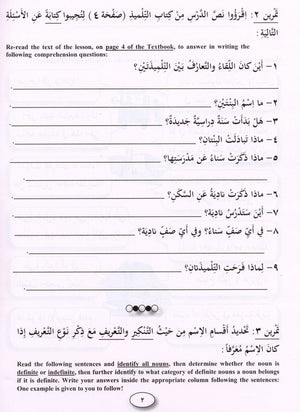 تمرين ٢: اِقْرَؤُوا نَصَّ الدَّرْسِ مِنْ كِتابِ التِّلْميذِ (صَفْحَة ٤) لِتُجيبوا كِتابَةً عَنِ الأَسْئِلَةِ
التّالِيَةِ:
Re-read the text of the lesson, on page 4 of the Textbook, to answer in writing the
following comprehension questions:
١- أَيْنَ كانَ اللِّقاءُ والتَّعارُفُ بَيْنَ التِّلْميذَتَيْنِ؟
٢- ما اِسْمُ الْبِنْتَيْنِ؟
٣- هَلْ بَدَأَتْ سَنَةٌ دِراسِيَّةٌ جَديدَةٌ؟
٤- ماذا تَبادَلَتْ الْبِنْتانِ؟
٥- ماذا ذَكَرَتْ سَناءُ عَنْ مَدْرَسَتِها؟
٦- ماذا ذَكَرَتْ نادِيَة عَنِ السَّكَنِ؟
٧- أَيْنَ سَتَدْرُسُ نادِيَة؟
٨- في أَيِّ صَفٍّ سَناءُ؟ وفي أَيِّ صَفٍّ نادِيَة؟
٩- لِماذا فَرِحَتِ التِّلْميذَتانِ؟
تمرين ٣: تَحْديدُ أَقْسامِ الاِسْمِ مِن حَيْثُ التَّنْكيرِ والتَّعْريفِ مَعَ ذِكْرِ نَوْعِ التَّعْريفِ إذا
كانَ الاِسْمُ مُعَرَّفاً:
Read the following sentences and identify all nouns, then determine whether the noun is
definite or indefinite, then further identify to what category of definite nouns a noun belongs
if it is definite. Write your answers inside the appropriate column following the sentences:
One example is given to you to follow!
٢